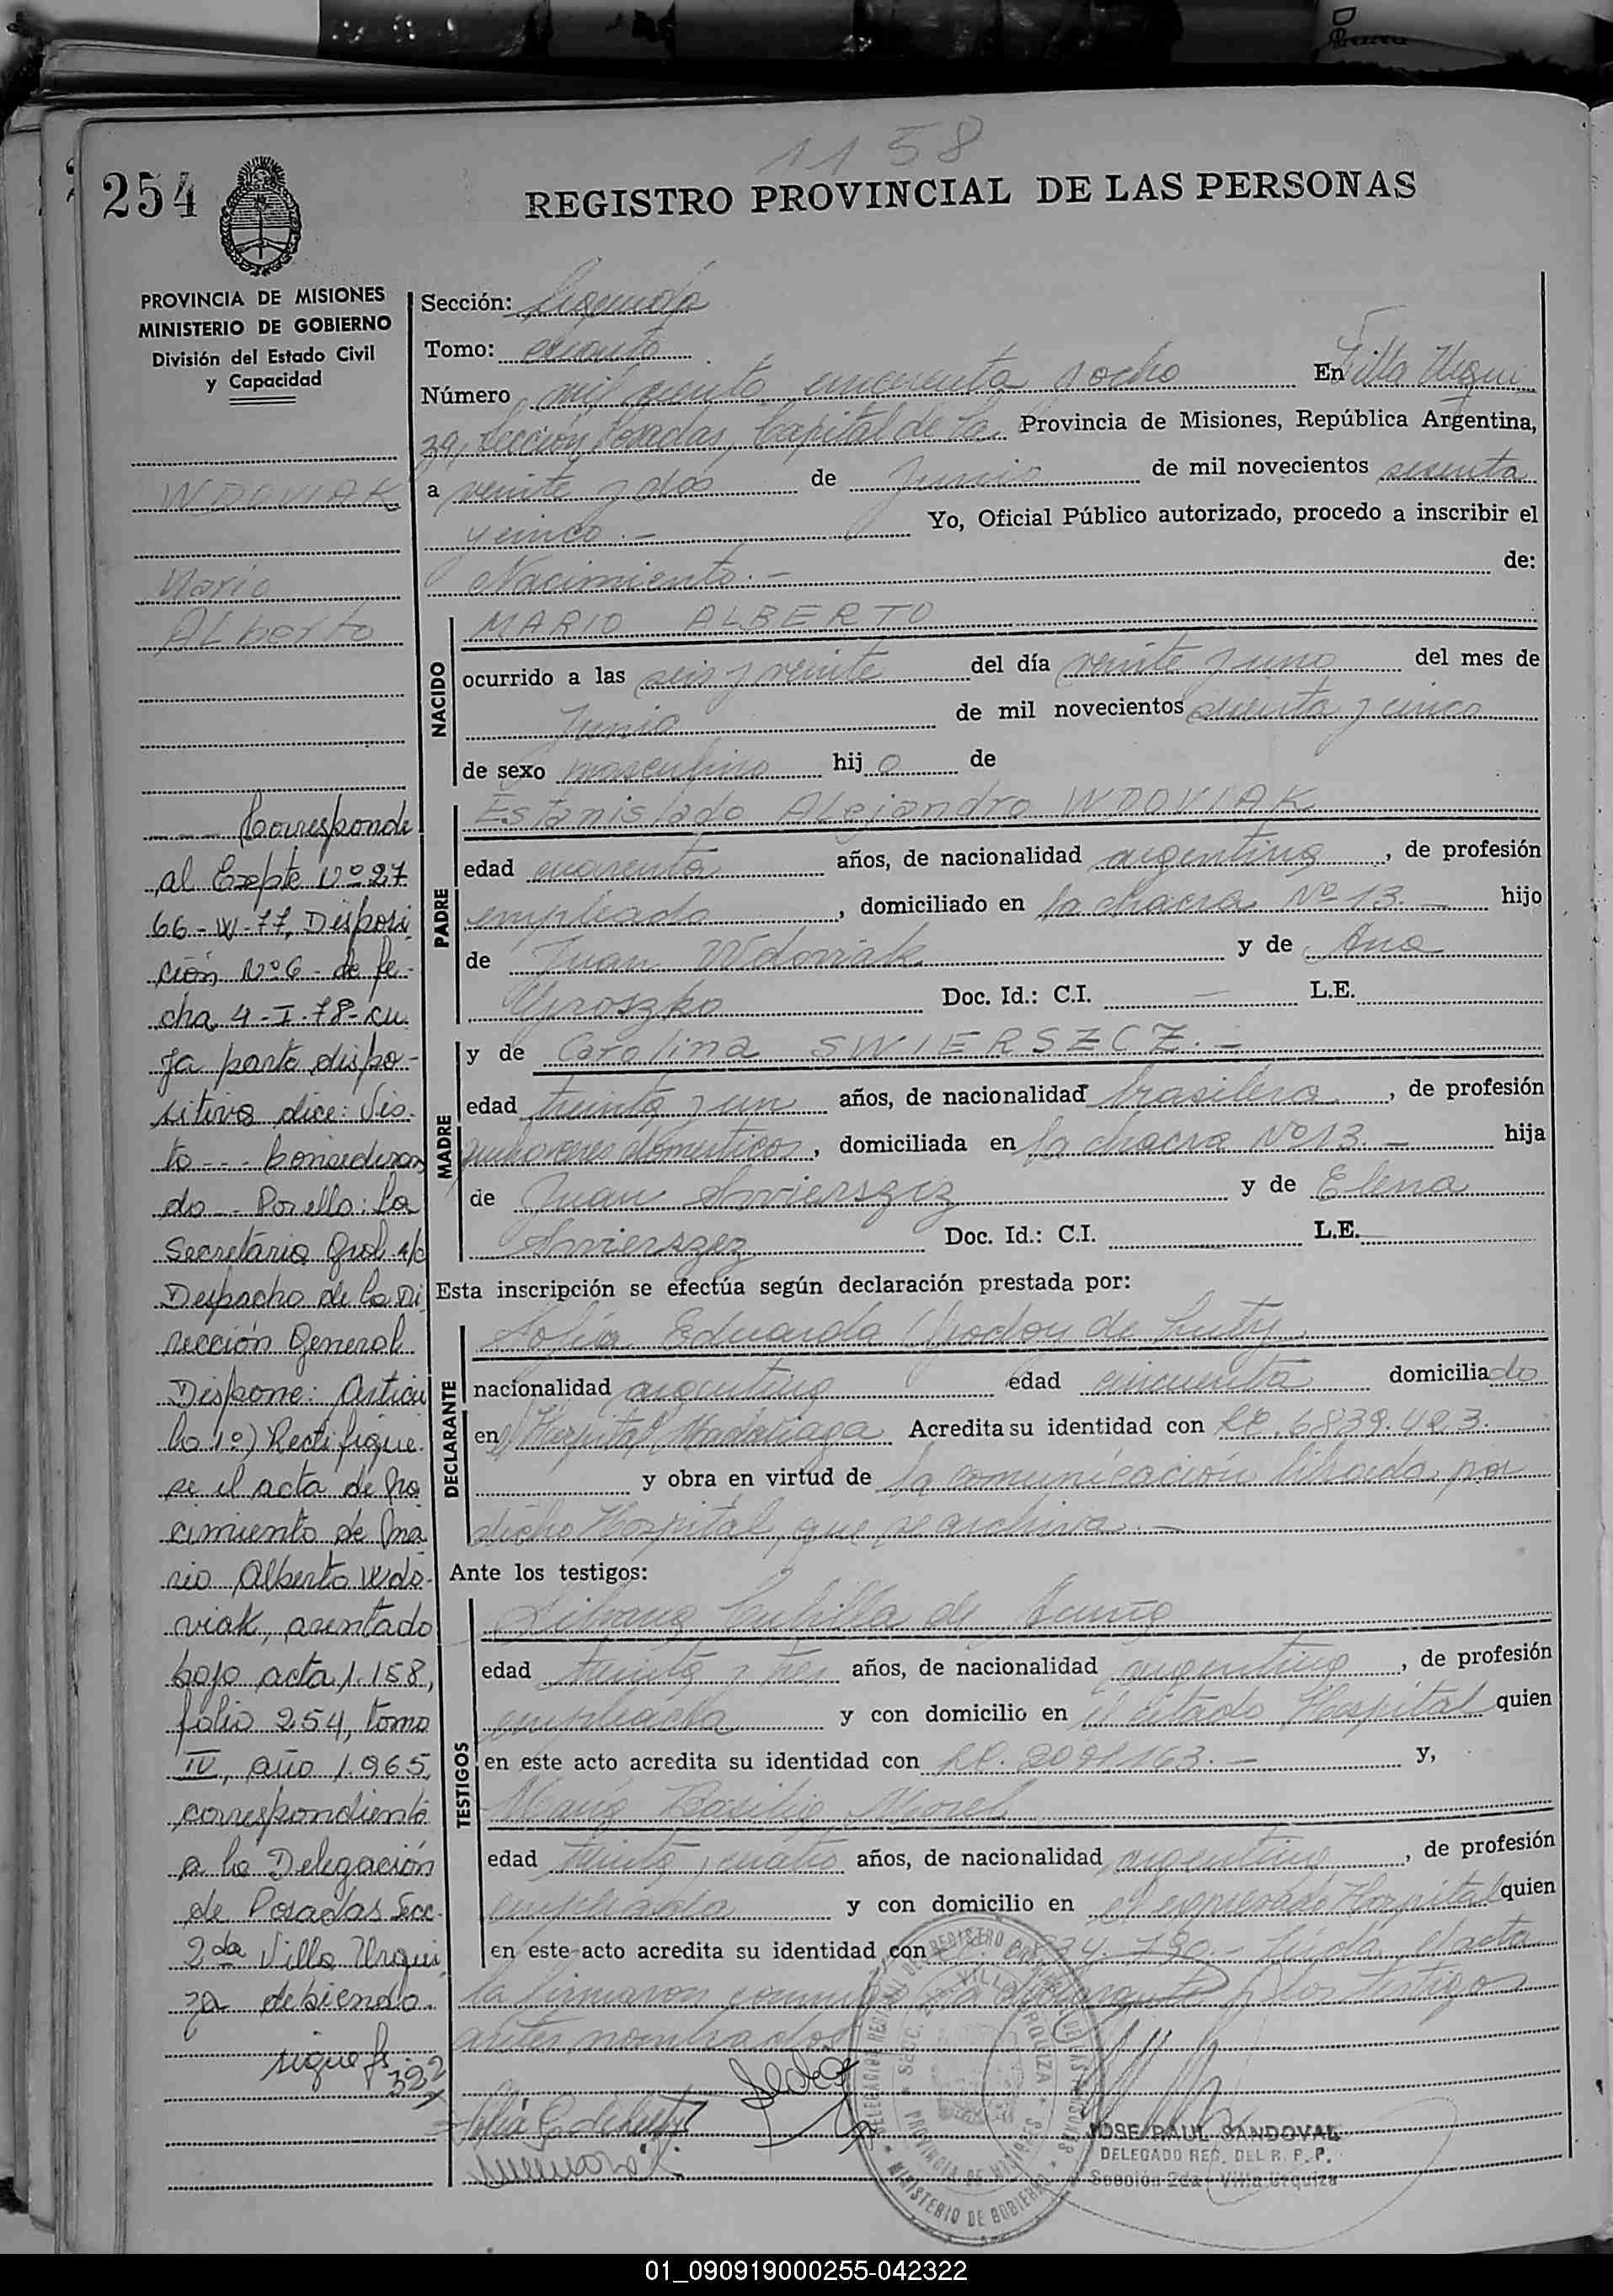 1158
254
REGISTRO PROVINCIAL DE LAS PERSONAS
PROVINCIA DE MISIONES
MINISTERIO DE GOBIERNO
División del Estado Civil
y Capacidad
WDOVIAK
Mario
Alberto
---- Corresponde
al Expte Nº 27
66-W-77, Disposi
ción Nº 6 - de fe-
cha 4-I-78- cu
ya parte dispo-
sitiva dice: Vis-
to --- Consideran
do -- Por ello: La
Secretaria Gral a/c
Despacho de la Di
rección General
Dispone: Artícu
lo 1º) Rectifique-
se el acta de Na
cimiento de Ma
rio Alberto Wdo-
viak, asentado
bajo acta 1.158,
folio 254, tomo
IV, año 1.965,
correspondiente
a la Delegación
de Posadas Secc.
2da Villa Urqui
za debiendo.
sigue fs 382
Sección: Segunda
Tomo: cuarto
Número mil ciento cincuenta y ocho En Villa Urqui
za, Sección Posadas, Capital de la Provincia de Misiones, República Argentina,
a veinte y dos de Junio de mil novecientos sesenta
y cinco.- Yo, Oficial Público autorizado, procedo a inscribir el
Nacimiento.- de:
NACIDO
MARIO ALBERTO
ocurrido a las seis y veinte del día veinte y uno del mes de
Junio de mil novecientos sesenta y cinco
de sexo masculino hijo de
PADRE
Estanislado Alejandro WDOVIAK
edad cuarenta años, de nacionalidad argentina, de profesión
empleado, domiciliado en la chacra Nº 13.- hijo
de Juan Wdoviak y de Ana
Yproszko Doc. Id.: C.I. - L.E.
MADRE
y de Carolina SWIERSZCZ.-
edad treinta y un años, de nacionalidad brasilera, de profesión
quehaceres domesticos, domiciliada en la chacra Nº 13.- hija
de Juan Swierszcz y de Elena
Swierszcz Doc. Id.: C.I. L.E.
Esta inscripción se efectúa según declaración prestada por:
DECLARANTE
Sofia Eduarda de Luty
nacionalidad argentina edad cincuenta domiciliado
en el Hospital Madariaga Acredita su identidad con LC. 6839.423.
y obra en virtud de la comunicación librada por
dicho Hospital, que se archiva.-
Ante los testigos:
TESTIGOS
Silvana de
edad treinta y tres años, de nacionalidad argentina, de profesión
empleada y con domicilio en el citado Hospital quien
en este acto acredita su identidad con LC. 2091163.- y,
Basilia Morel
edad treinta y cuatro años, de nacionalidad argentina, de profesión
empleada y con domicilio en el expresado Hospital quien
en este acto acredita su identidad con Leída el acta
la firmaron conmigo la declarante y los testigos
antes nombrados
JOSE RAUL SANDOVAL
DELEGADO REG. DEL R. P. P.
Sección 2da Villa Urquiza
SECC. 2da VILLA URQUIZA
PROVINCIA DE MISIONES
MINISTERIO DE GOBIERNO
01_090919000255-042322